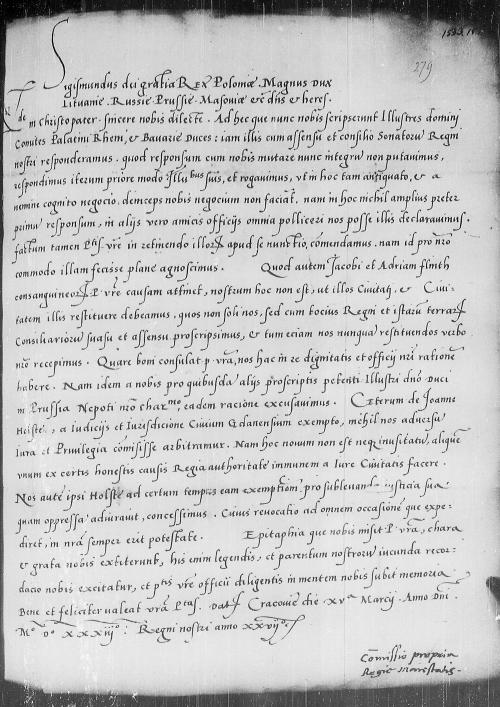 279
Sigismundus dei gratia Rex Poloniæ, Magnus Dux
Lituaniæ, Russiæ, Prussiæ, Masoviæ etc dns & heres.
in Christo pater. sincere nobis dilecte. Ad hec que nunc nobis scripserunt Illustres domini
Comites Palatini Rheni, & Bavariæ Duces: iam illis cum assensu et consilio Senatoru Regni
nostri responderamus. quod responsum cum nobis mutare nunc integru non putavimus,
respondimus iterum priore modo Illu bus suis, et rogavimus, vt in hoc tam antiquato, & a
nemine cognito negocio, deinceps nobis negocium non faciat, nam in hoc nichil amplius preter
primu responsum, in alijs vero amicis officijs omnia polliceri nos posse illis declaravimus.
factum tamen Ptis vræ in retinendo illor apud se nunctio, comendamus. nam id pro nro
commodo illam fecisse plane agnoscimus. Quod autem Jacobi et Adriam flinth
consanguineor P. vræ causam attinet, nostrum hoc non est, ut illos Civitati, & Civi-
tatem illis restituere debeamus. quos non soli nos, sed cum tocius Regni et istaru terrar
Consiliarioru suasu et assensu proscripsimus, & tum eciam nos nunqua restituendos verbo
nro recepimus. Quare boni consulat p. vra, nos hac in re dignitatis et officij nri ratione
habere. Nam idem a nobis pro quibusda alijs proscriptis petenti Illustri dno Duci
in Prussia Nepoti nro char mo, eadem racione excusavimus. Cæterum de Joanne
Holste, a Iudicijs et Iurisdicione Civium Gdanensium exempto, nichil nos adversu
Iura et Privilegia comisisse arbitramur. Nam hoc novum non est neq inusitatu, alique
vnum ex certis honestis causis Regia authoritate immunem a Iure Civitatis facere.
Nos aute ipsi Holste ad certum tempus eam exemptione pro sublevanda iusticia sua
quam oppressa adiurauit, concessimus. Cuius revocatio ad omnem occasione que expe-
diret, in nra semper erit potestate. Epitaphia que nobis misit P. vra, chara
& grata nobis extiterunt, his enim legendis, et parentum nostroru iucunda recor-
dacio nobis excitatur, et ptis vræ officii diligentis in mentem nobis subit memoria.
Bene et feliciter valeat vra Ptas. Dat Cracoviæ die xv a Marcij. Anno Dni
Mo Do xxxiijo. Regni nostri anno xxvijo
Comissio propria
Regie Maiestatis.